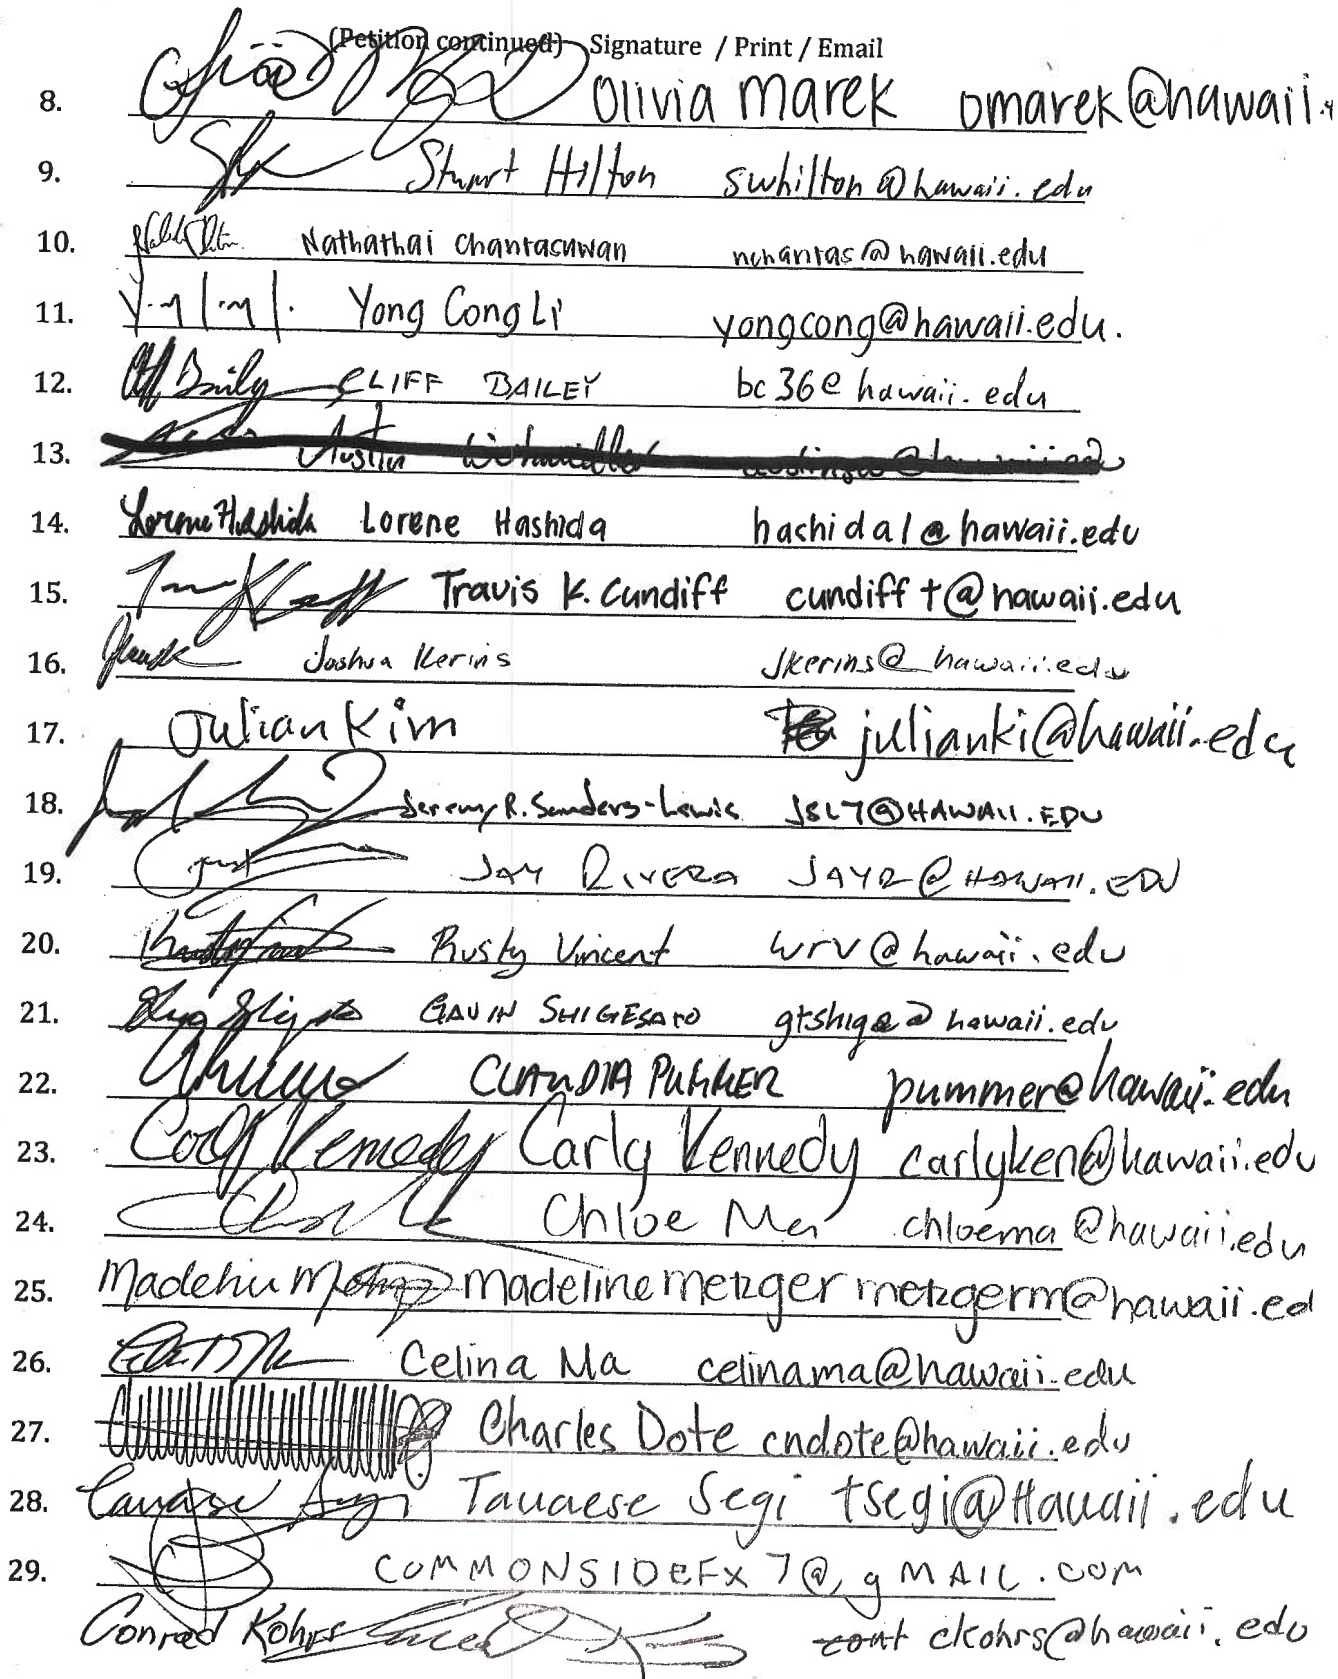 (Petition continued) Signature / Print / Email
8. Olivia Marek omarek@hawaii.
9. Stuart Hilton swhilton@hawaii.edu
10. Nathathai Chantasuwan nchantas@hawaii.edu
11. Yong Cong Li yongcong@hawaii.edu.
12. Cliff Baily CLIFF BAILEY bc36@hawaii.edu
13. Austin
14. Lorene Hashida Lorene Hashida hashidal@hawaii.edu
15. Travis K. Cundiff cundifft@hawaii.edu
16. Joshua Kerins jkerins@hawaii.edu
17. Julian Kim julianki@hawaii.edu
18. Jeremy R. Sanders-Lewis JSL7@HAWAII.EDU
19. JAY RIVERA JAYR@HAWAII.EDU
20. Rusty Vincent wrv@hawaii.edu
21. GAVIN SHIGESATO gtshige@hawaii.edu
22. CLAUDIA PUMMER pummer@hawaii.edu
23. Carly Kennedy Carly Kennedy carlyken@hawaii.edu
24. Chloe Ma chloema@hawaii.edu
25. Madeline Metzger madeline metzger metzgerm@hawaii.ed
26. Celina Ma celinama@hawaii.edu
27. Charles Dote cndote@hawaii.edu
28. Tauaese Segi Tauaese Segi tsegi@Hawaii.edu
29. COMMONSIDEFX7@gMAIL.COM
Conrad Kohrs ckohrs@hawaii.edu